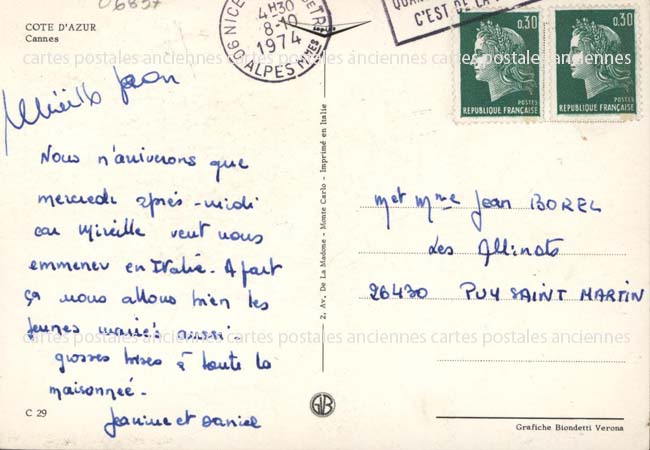 06857
COTE D'AZUR
Cannes
NICE
4H30
8-10
1974
06 ALPES MMES
C'EST DE LA
0.30
POSTES
REPUBLIQUE FRANÇAISE
0.30
POSTES
REPUBLIQUE FRANÇAISE
cartes postales anciennes cartes postales anciennes cartes postales anciennes
Mireille Jean
Nous n'arriverons que
mercredi après-midi
car Mireille veut nous
emmener en Italie. A part
ça nous allons bien les
jeunes mariés aussi.
grosses bises à toute la
maisonnée.
Jeanine et Daniel
M et Mme Jean BOREL
Les
26430 PUY SAINT MARTIN
cartes postales anciennes cartes postales anciennes cartes postales anciennes
2, Av. De La Madone - Monte Carlo - Imprimé en Italie
C 29
GB
Grafiche Biondetti Verona